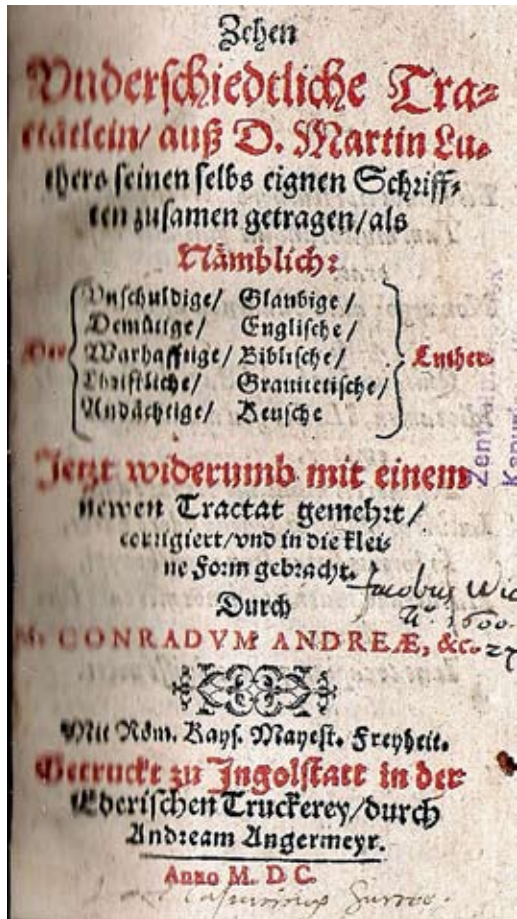 Zehen
Vnderschiedtliche Tra⸗
ctätlein/ auß D. Martin Lu⸗
thers seinen selbs eignen Schriff⸗
ten zusamen getragen/als
Nämblich:
Vnschuldige/ Glaubige/
Demütige/ Englische/
Der Warhafftige/ Biblische/ Luther.
Christliche/ Grauitetische/
Andächtige/ Keusche
Jetzt widerumb mit einem
newen Tractat gemehrt/
corrigiert/vnd in die klei⸗
ne Form gebracht.
Durch
M. CONRADVM ANDREÆ, &c.
Jacobus
1600.
27
Mit Röm. Kays. Mayest. Freyheit.
Getruckt zu Jngolstatt in der
Ederischen Truckerey/durch
Andream Angermeyr.
Anno M. D C.